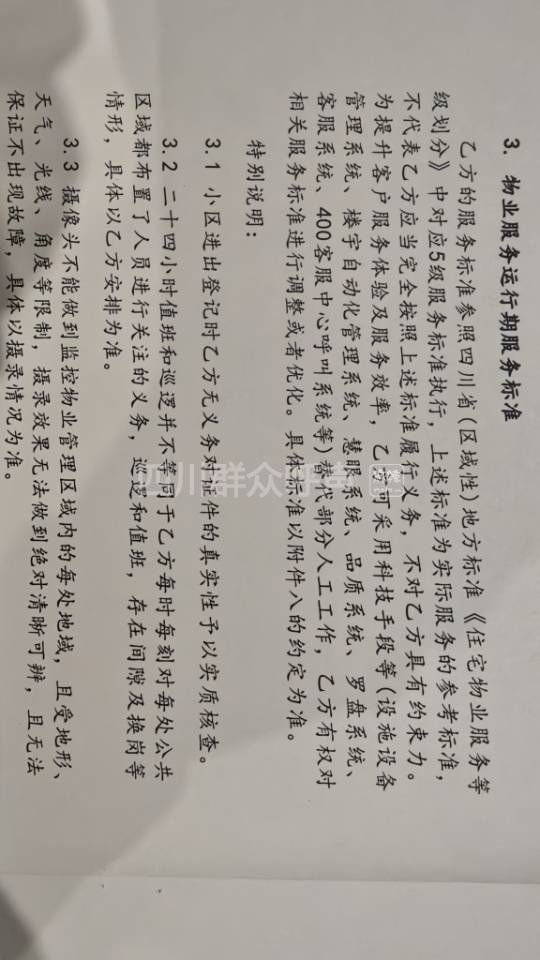 3. 物业服务运行期服务标准
乙方的服务标准参照四川省(区域性)地方标准《住宅物业服务等
级划分》中对应5级服务标准执行，上述标准为实际服务的参考标准，
不代表乙方应当完全按照上述标准履行义务，不对乙方具有约束力。
为提升客户服务体验及服务效率，乙方可采用科技手段等(设施设备
管理系统、楼宇自动化管理系统、慧眼系统、品质系统、罗盘系统、
客服系统、400客服中心呼叫系统等)替代部分人工工作，乙方有权对
相关服务标准进行调整或者优化。具体标准以附件八的约定为准。
特别说明：
3.1 小区进出登记时乙方无义务对证件的真实性予以实质核查。
3.2 二十四小时值班和巡逻并不等同于乙方每时每刻对每处公共
区域都布置了人员进行关注的义务，巡逻和值班，存在间隙及换岗等
情形，具体以乙方安排为准。
3.3 摄像头不能做到监控物业管理区域内的每处地域，且受地形、
天气、光线、角度等限制，摄录效果无法做到绝对清晰可辨，且无法
保证不出现故障，具体以摄录情况为准。
四川群众呼声